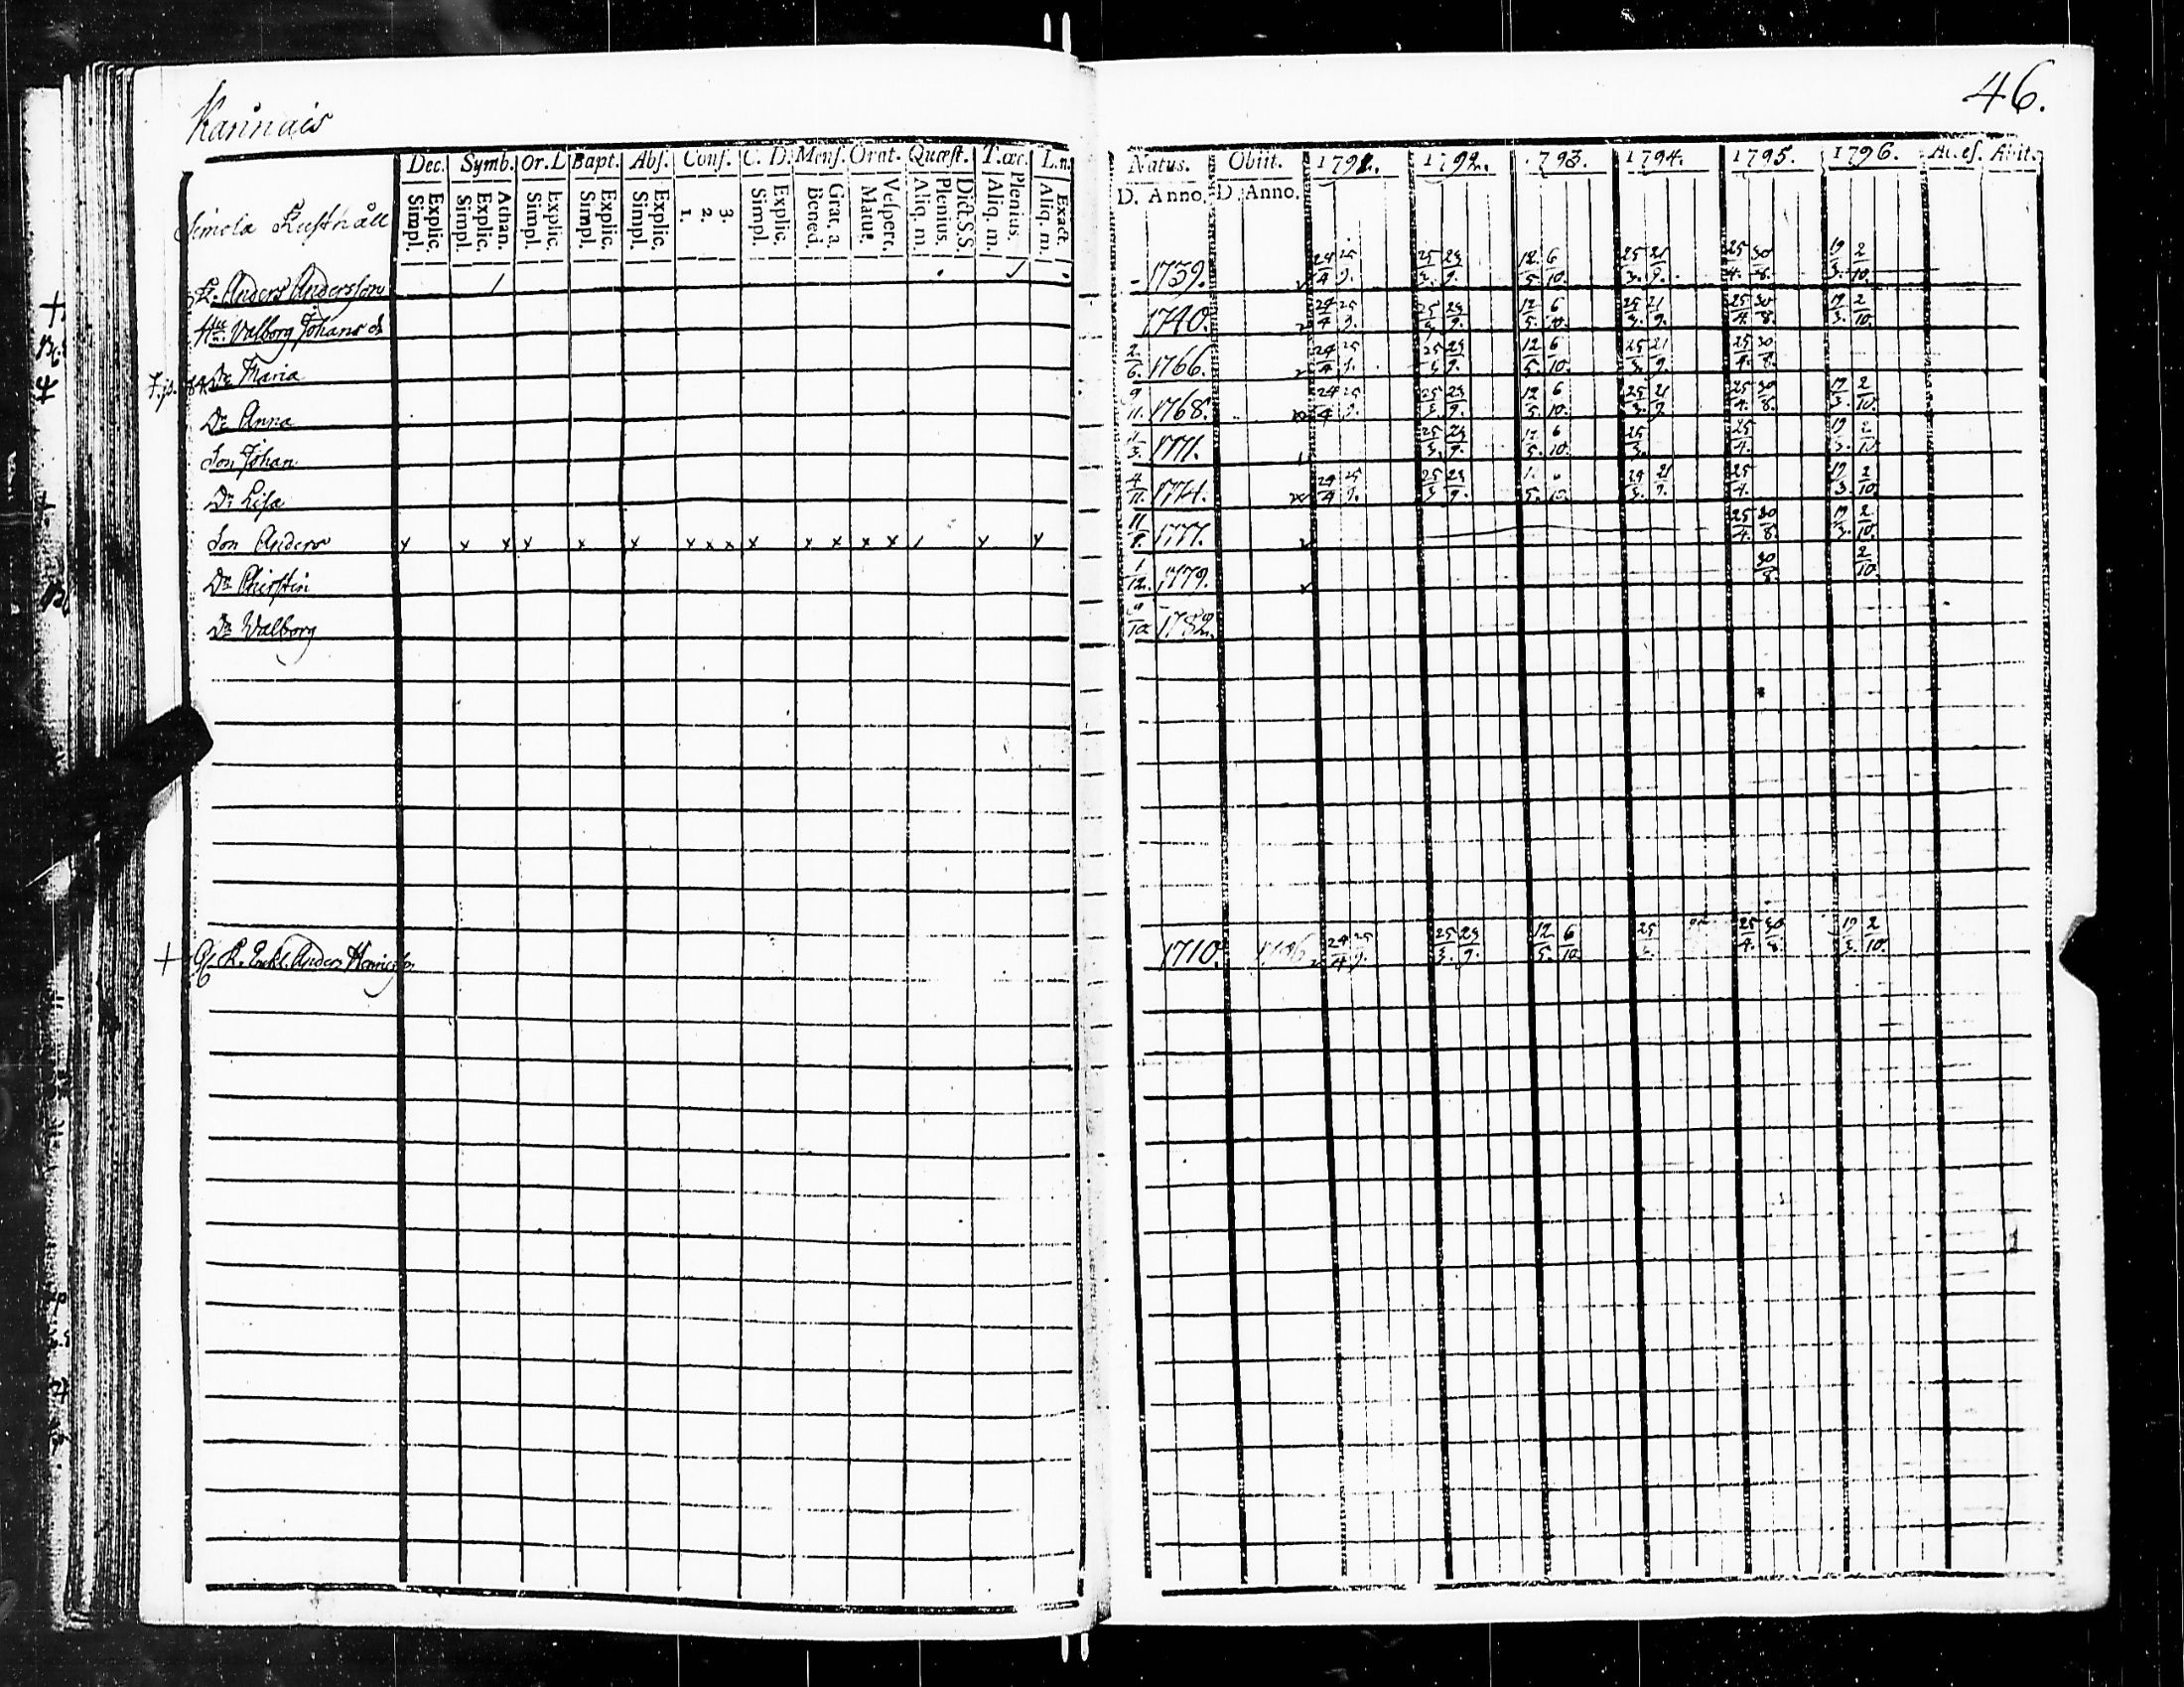 46.
Karinais
Dec. Symb. Or. L Bapt. Abs. Conf. C. D. Mens. Orat. Quæst. T. œc. L. n. Natus. Obiit. 1791. 1792. 1793. 1794. 1795. 1796. Acces. Abit.
Simpl. Explic. Simpl. Explic. Athan. Simpl. Explic. Simpl. Explic. Simpl. Explic. 1. 2. 3. Simpl. Explic. Bened. Grat. a. Matut. Vespert. Aliq. m. Plenius. Dict. S.S. Aliq. m. Plenius. Aliq. m. Exact. D. Anno. D. Anno.
Simola Rusthåll
B. Anders Andersson - 1739. 24/4 25/9. 25/3. 23/9. 12/5. 6/10. 25/3. 21/9. 25/4. 30/8. 19/3. 2/10.
Hu. Valborg Johans d. 1740. 24/4 25/9. 25/3. 23/9. 12/5. 6/10. 25/3. 21/9. 25/4. 30/8. 19/3. 2/10.
Dr Maria 2/6. 1766. 24/4 25/9. 25/3. 23/9. 12/5. 6/10. 25/3. 21/9. 25/4. 30/8.
Dr Anna 9/11. 1768. 24/4 25/9. 25/3. 23/9. 12/5. 6/10. 25/3. 21/9. 25/4. 30/8. 19/3. 2/10.
Son Johan 1771. 25/3. 23/9. 12/5. 6/10. 25/3. 25/4. 19/3. 2/10.
Dr Lisa 4/11. 1774. 24/4 25/9. 25/3. 23/9. 21/9. 25/4. 19/3. 2/10.
Son Anders x x x x x x x x x x x x x x x x 11/8. 1777. 25/4. 30/8. 19/3. 2/10.
Dr Chirstin 1/12. 1779. 30/8. 2/10.
Dr Walborg 1782.
+ Anders Henricss. 1710. 1796 24/4 25/9. 25/3. 23/9. 12/5. 6/10 25 25/4. 30/8. 19/3. 2/10.